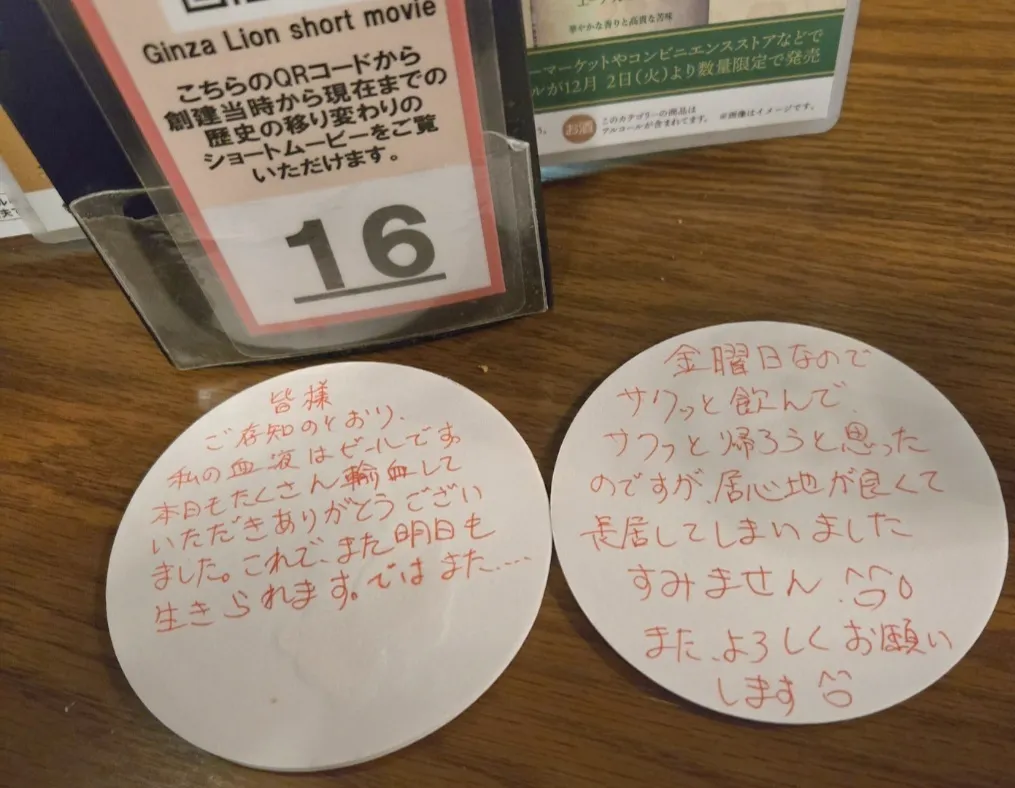 Ginza Lion short movie
こちらのQRコードから
創建当時から現在までの
歴史の移り変わりの
ショートムービーをご覧
いただけます。
16
華やかな香りと高貴な苦味
ーマーケットやコンビニエンスストアなどで
ルが12月 2日(火)より数量限定で発売
お酒
このカテゴリーの商品は
アルコールが含まれてます。
※画像はイメージです。
皆様
ご存知のとおり、
私の血液はビールです。
本日もたくさん輸血して
いただきありがとうござい
ました。これで、また明日も
生きられます。ではまた....
金曜日なので
サクッと飲んで、
サクッと帰ろうと思った
のですが、居心地が良くて
長居してしまいました
すみません
また、よろしくお願い
します